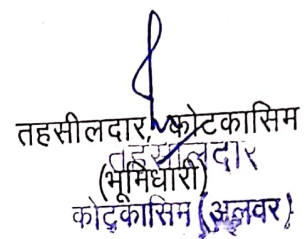 तहसीलदार, कोटकासिम
तहसीलदार
(भूमिधारी)
कोटकासिम (अलवर)